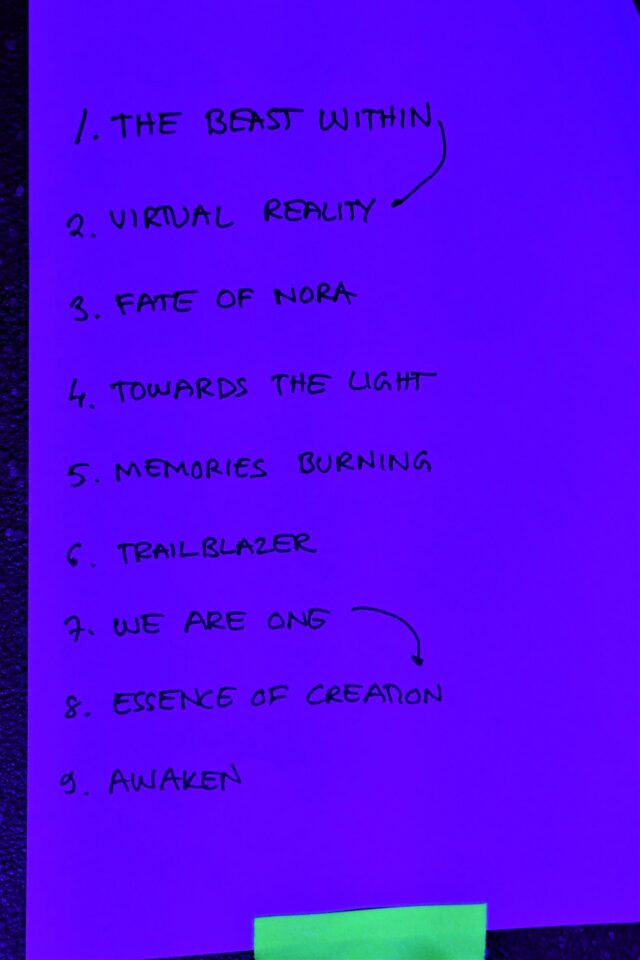 1. THE BEAST WITHIN
2. VIRTUAL REALITY
3. FATE OF NORA
4. TOWARDS THE LIGHT
5. MEMORIES BURNING
6. TRAILBLAZER
7. WE ARE ONE
8. ESSENCE OF CREATION
9. AWAKEN